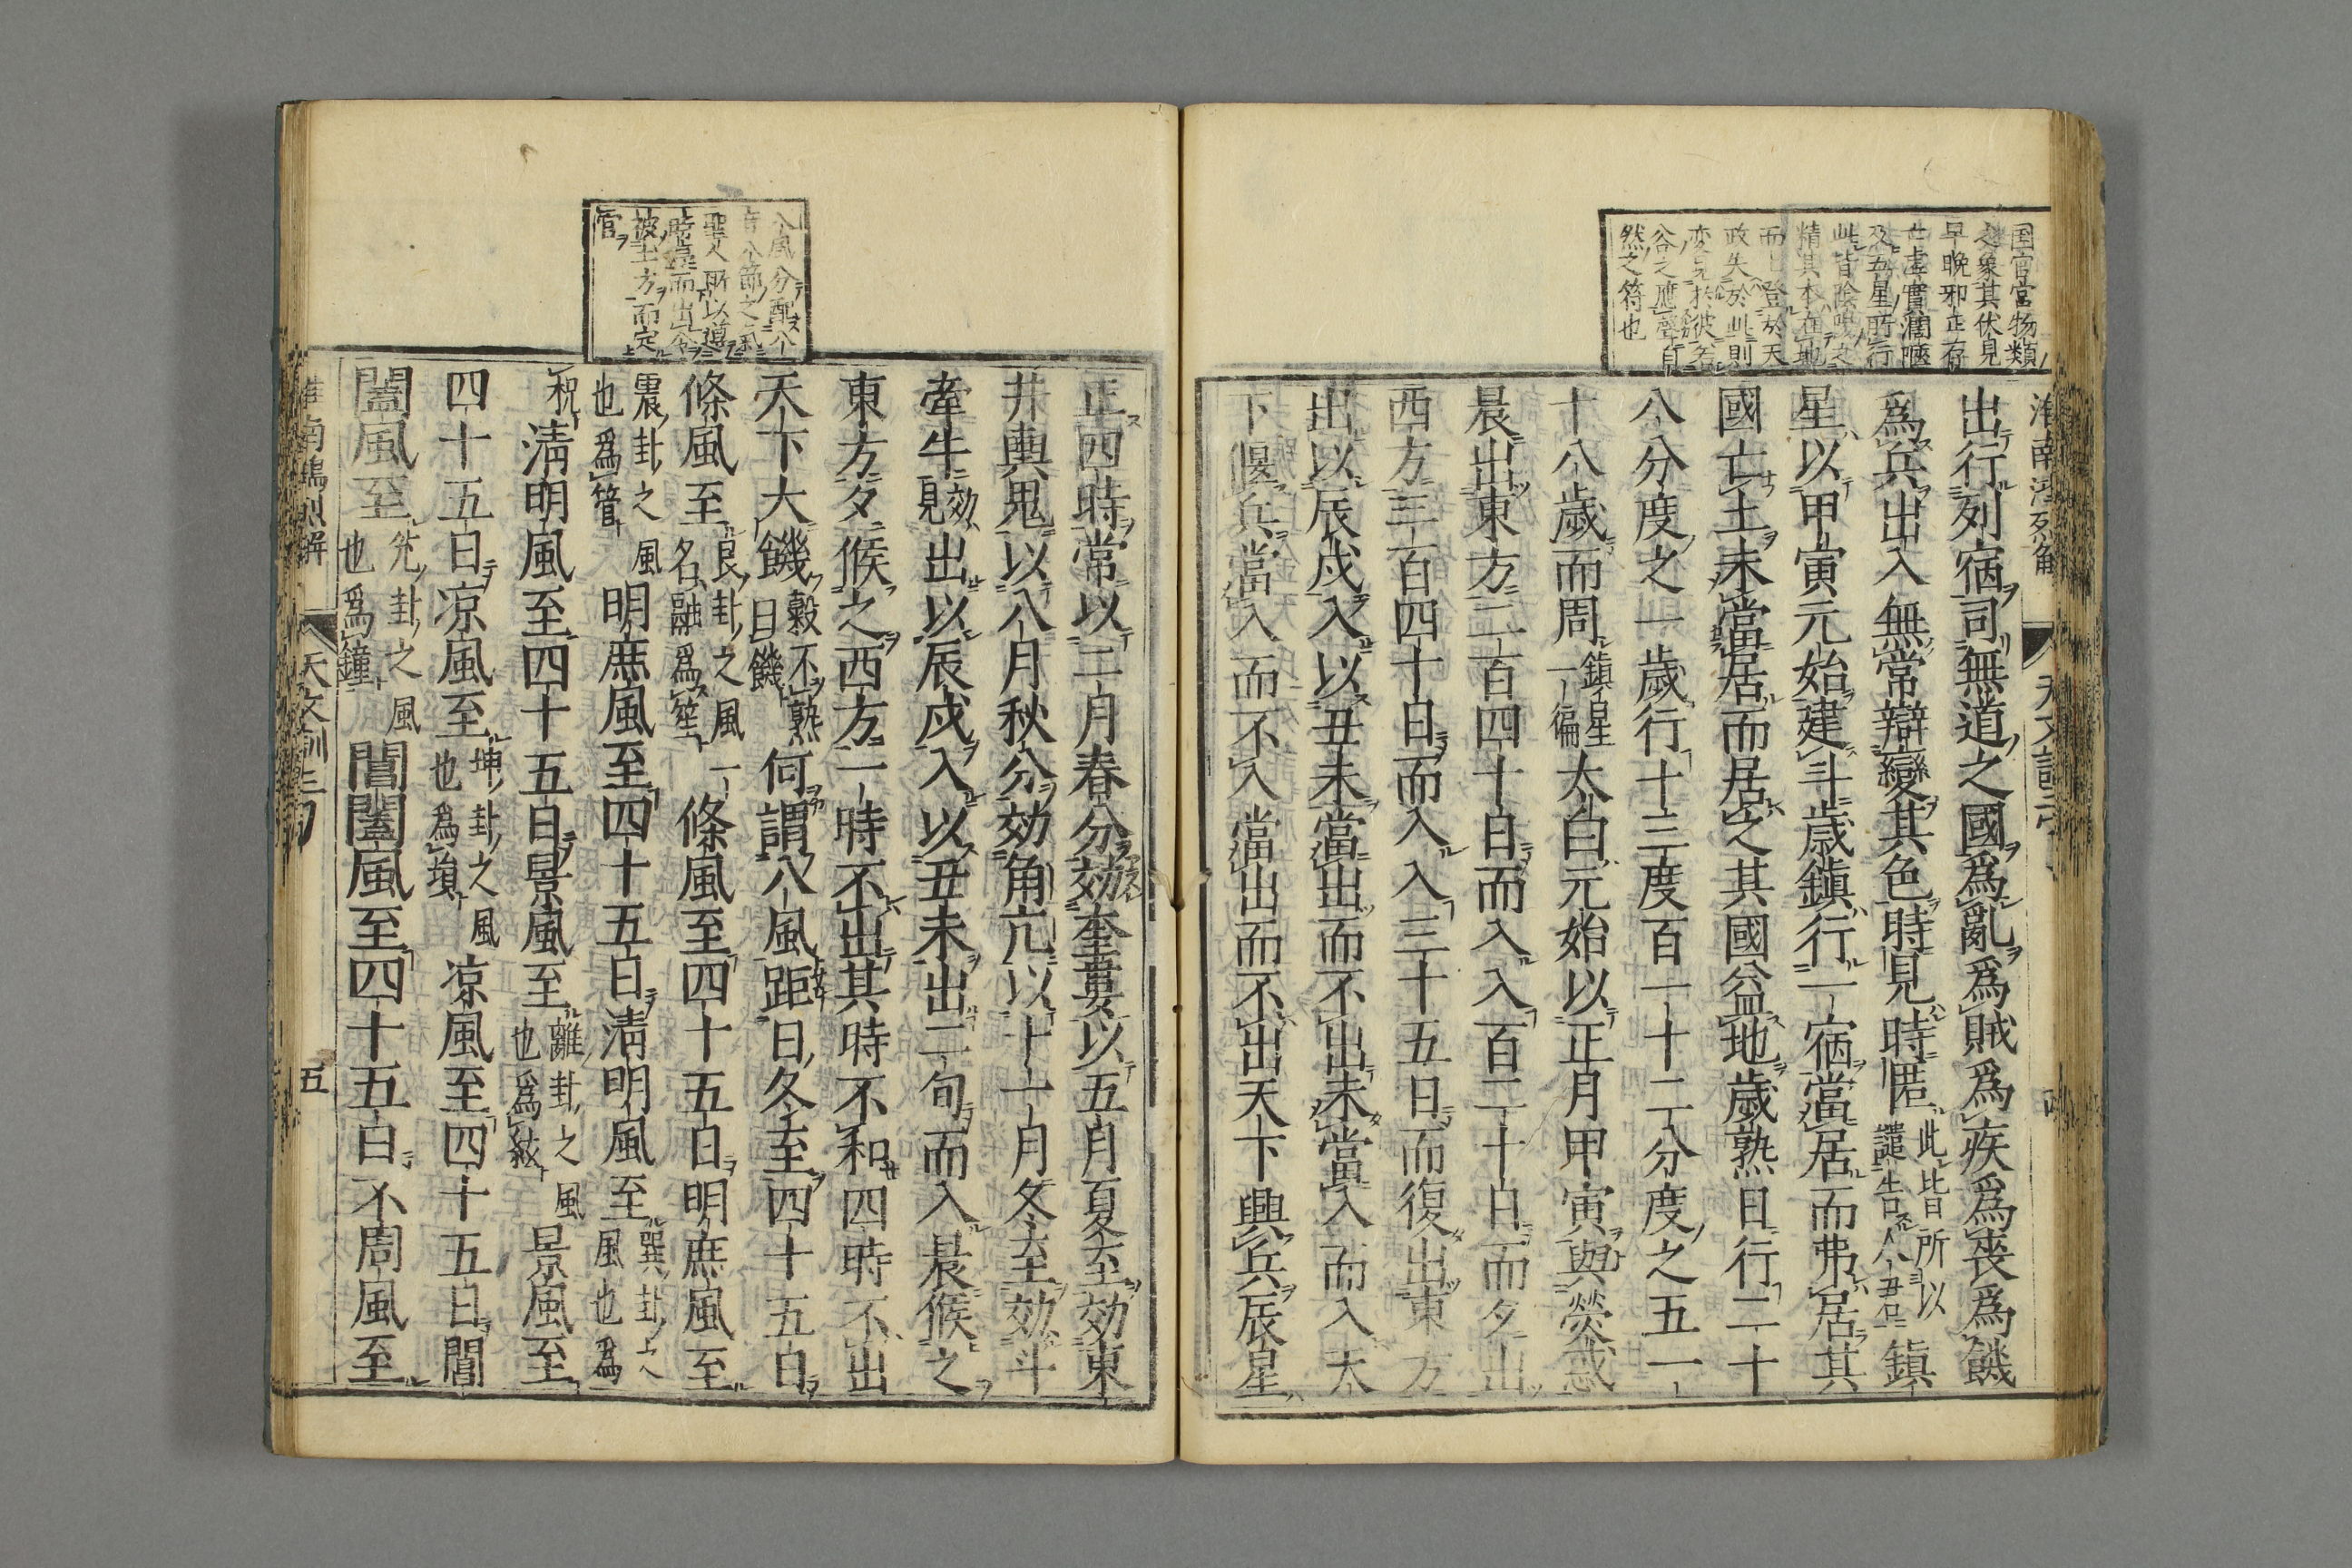 国官宮物類
之象其伏見
早晩邪正存
亡虚實濶陿
及五星所行
此皆陰陽之
精其本在地
而上登於天
政失於此則
変見於彼若
谷之應聲自
然之符也
出行列宿司無道之國爲亂爲賊爲疾爲喪爲饑
爲兵出入無常辯變其色時見時匿此皆所以
譴告人君鎮
星以甲寅元始建斗歳鎮行一宿當居而弗居其
國亡土未當居而居之其國益地歳熟日行二十
八分度之一歳行十三度百一十二分度之五一
十八歳而周鎮星
一徧太白元始以正月甲寅與熒惑
晨出東方二百四十日而入入百二十日而夕出
西方二百四十日而入入三十五日而復出東方
出以辰戌入以丑未當出而不出未當入而入太
下偃兵當入而不入當出而不出天下興兵辰星
八風分配八
音八節之氣
聖人所以導
時基而出令
被土方而定
官
正四時常以二月春分効奎婁以五月夏至効東
井輿鬼以八月秋分効角亢以十一月冬至効斗
牽牛効
見出以辰戌入以丑未出二旬而入晨候之
東方夕候之西方一時不出其時不和四時不出
天下大饑穀不熟
曰饑何謂八風距日冬至四十五日
條風至艮卦之風一
名融爲笙條風至四十五日明庶風至
震卦之風
也爲管明庶風至四十五日清明風至巽卦之
風也爲
柷清明風至四十五日景風至離卦之風
也爲絃景風至
四十五日凉風至坤卦之風
也爲塤凉風至四十五日閶
闔風至兌卦之風
也爲鐘閶闔風至四十五日不周風至
淮南鴻烈解
天文訓三
五